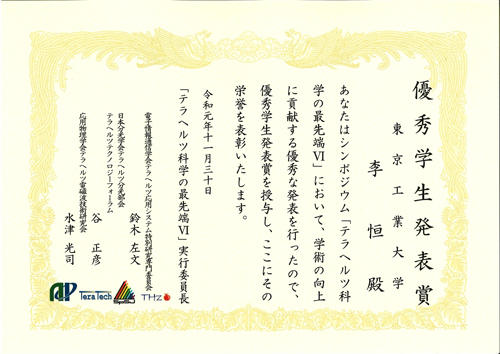 優秀学生発表賞
東京工業大学
李恒殿
あなたはシンポジウム「テラヘルツ科
学の最先端Ⅵ」において、学術の向上
に貢献する優秀な発表を行ったので、
優秀学生発表賞を授与し、ここにその
栄誉を表彰いたします。
令和元年十一月三十日
「テラヘルツ科学の最先端Ⅵ」実行委員長
電子情報通信学会テラヘルツ応用システム特別研究専門委員会
鈴木左文
日本分光学会テラヘルツ分光部会
テラヘルツテクノロジーフォーラム
谷正彦
応用物理学会テラヘルツ電磁波技術研究会
水津光司
Tera Tech
THz